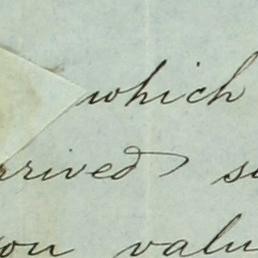 which
rrived s
ou valu